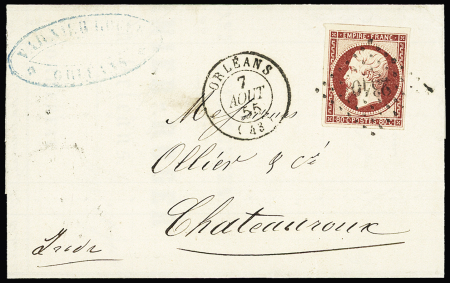 ORLÉANS
ORLÉANS
7
AOUT
55
(43)
EMPIRE FRANC
80 C POSTES 80 C
Messieurs
Ollier & Cie
Chateauroux